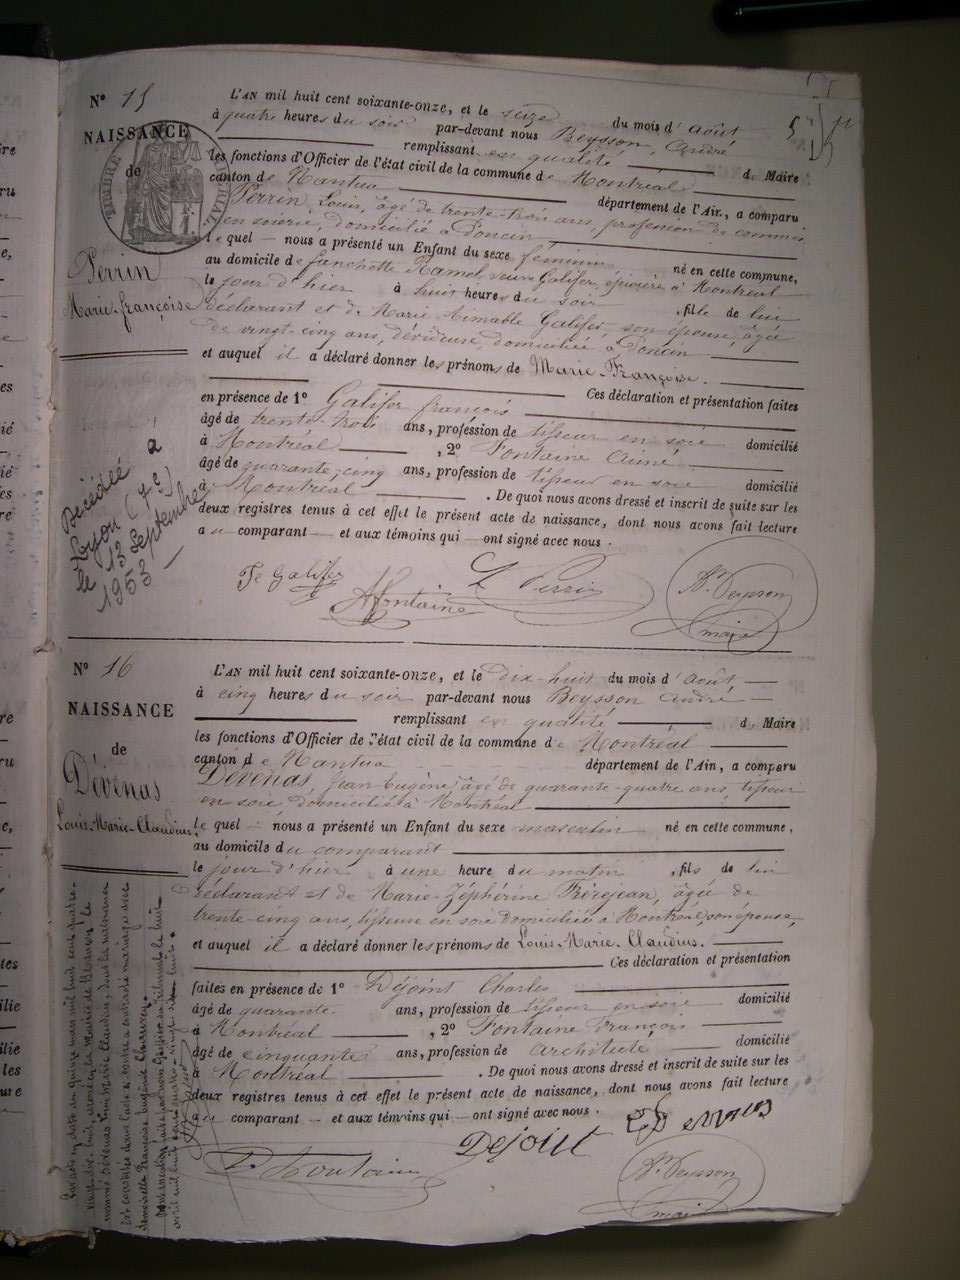 N° 15
NAISSANCE
de
Perrin
Marie-françoise
L'AN mil huit cent soixante-onze, et le seize du mois d'août
à quatre heures du soir par-devant nous Beysson, André
remplissant en qualité de Maire
les fonctions d'Officier de l'état civil de la commune de Montréal
canton de Nantua département de l'Ain, a comparu
Perrin, Louis, âgé de trente-trois ans, profession de commis
en soierie, domicilié à Poncin
le quel nous a présenté un Enfant du sexe féminin né en cette commune,
au domicile de fanchette Ramel veuve Galifer, épicière à Montréal
le jour d'hier à huit heures du soir, fille de lui
déclarant et de Marie Aimable Galifer, son épouse, âgée
de vingt-cinq ans, dévideuse, domiciliée à Poncin
et auquel il a déclaré donner les prénoms de Marie-Françoise.
Ces déclaration et présentation faites
en présence de 1° Galifer françois
âgé de trente-trois ans, profession de tisseur en soie domicilié
à Montréal, 2° Fontaine Aimé
âgé de quarante-cinq ans, profession de tisseur en soie domicilié
à Montréal. De quoi nous avons dressé et inscrit de suite sur les
deux registres tenus à cet effet le présent acte de naissance, dont nous avons fait lecture
au comparant et aux témoins qui ont signé avec nous.
Décédée à
Lyon (7e)
le 13 Septembre
1953
Galifer
Afontaine
L Perrin
A. Beysson
maire
N° 16
NAISSANCE
de
Dévenas
Louis-Marie-Claudius.
L'AN mil huit cent soixante-onze, et le dix-huit du mois d'août
à cinq heures du soir par-devant nous Beysson André
remplissant en qualité de Maire
les fonctions d'Officier de l'état civil de la commune de Montréal
canton de Nantua département de l'Ain, a comparu
Dévenas, Jean-Eugène, âgé de quarante-quatre ans, tisseur
en soie domicilié à Montréal
le quel nous a présenté un Enfant du sexe masculin né en cette commune,
au domicile du comparant
le jour d'hier à une heure du matin, fils de lui
déclarant et de Marie-Zéphérine Frèrejean, âgée de
trente-cinq ans, tisseuse en soie domiciliée à Montréal, son épouse,
et auquel il a déclaré donner les prénoms de Louis-Marie-Claudius.
Ces déclaration et présentation
faites en présence de 1° Déjoint Charles
âgé de quarante ans, profession de tisseur en soie domicilié
à Montréal, 2° Fontaine François
âgé de cinquante ans, profession de architecte domicilié
à Montréal. De quoi nous avons dressé et inscrit de suite sur les
deux registres tenus à cet effet le présent acte de naissance, dont nous avons fait lecture
au comparant et aux témoins qui ont signé avec nous.
DeJoint
Devenas
Fontaine
A. Beysson
maire